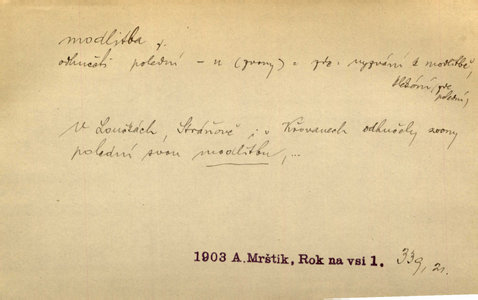 modlitba f.
odhučeti polední – u (zvony) = zde: vyzvání k modlitbě,
zde polední,
V Loučkách, Stráňově i v Křovanech odhučely zvony
polední svou modlitbu, ...
1903 A. Mrštík, Rok na vsi 1. 339, 21.